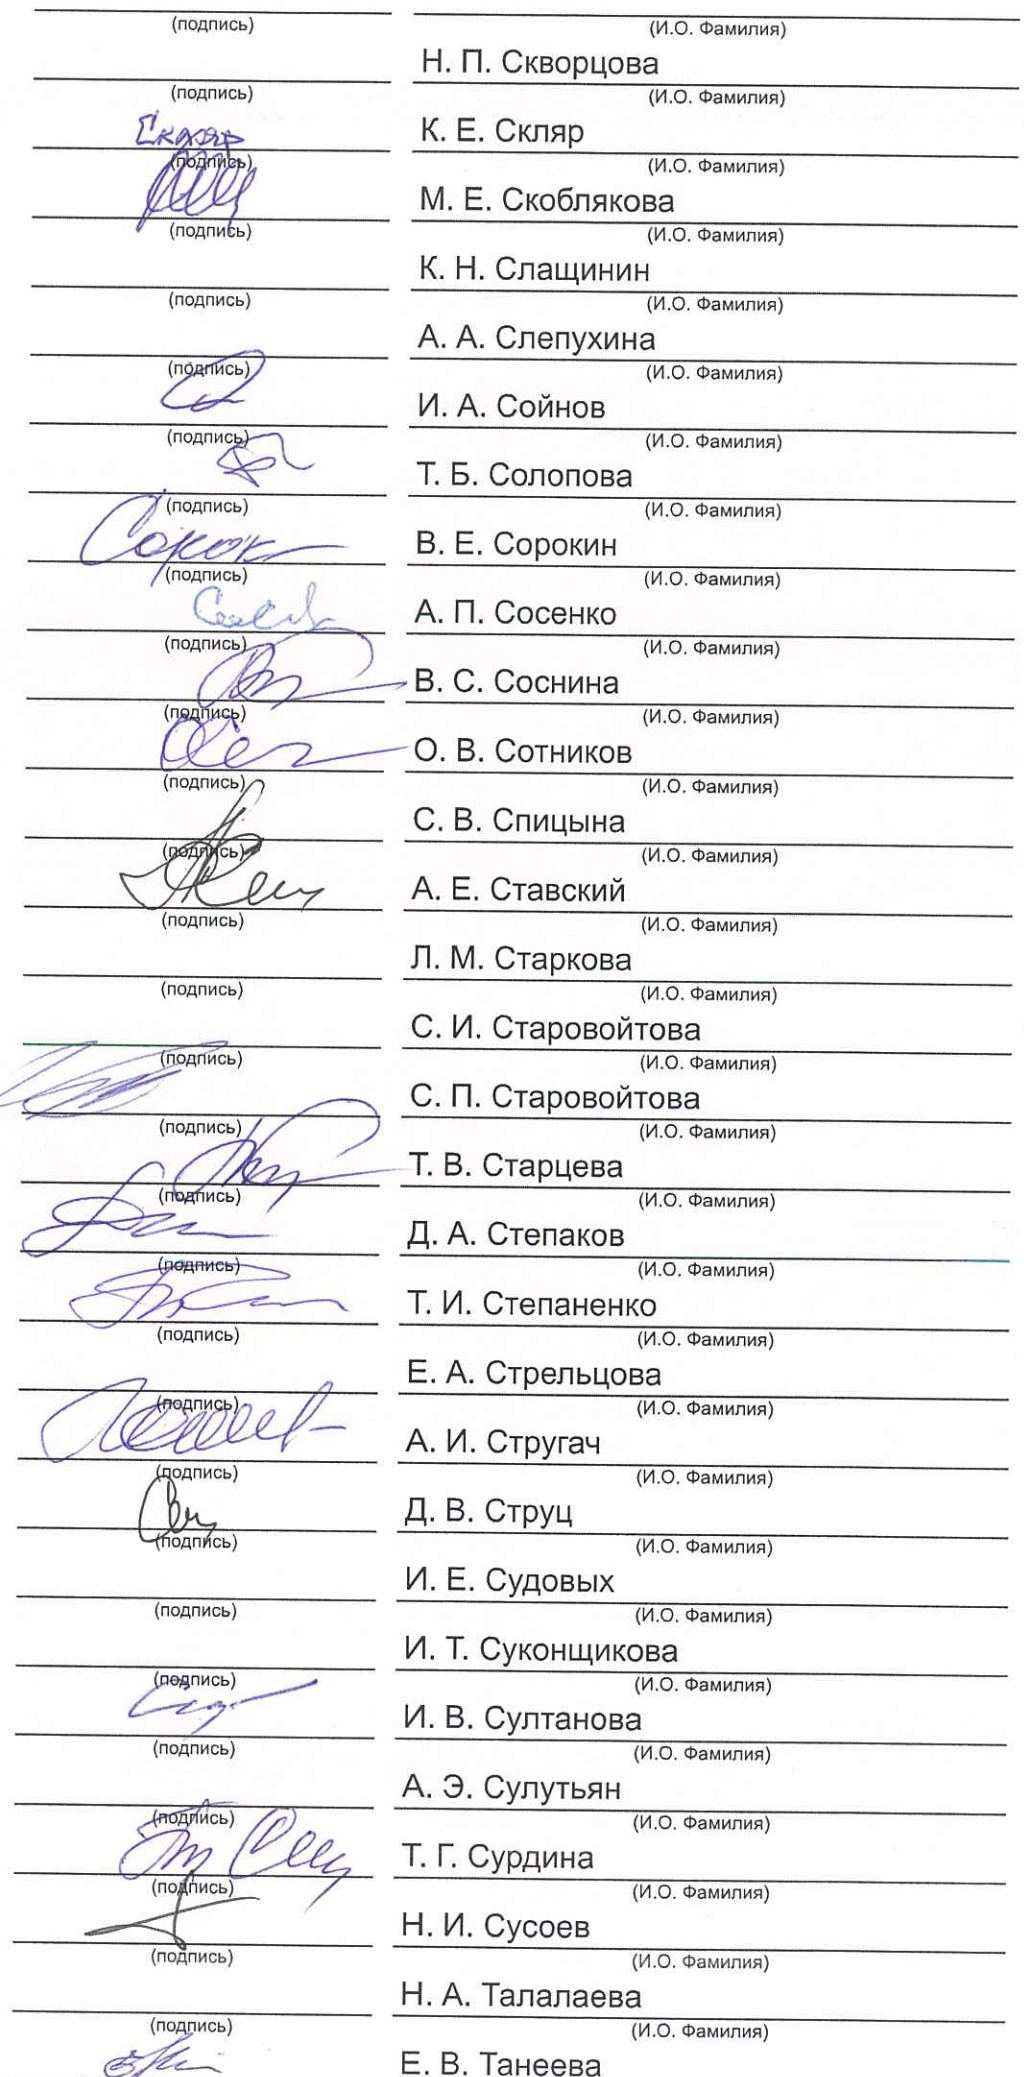 (подпись) (И.О. Фамилия)
Н. П. Скворцова
(подпись) (И.О. Фамилия)
Скляр К. Е. Скляр
(подпись) (И.О. Фамилия)
М. Е. Скоблякова
(подпись) (И.О. Фамилия)
К. Н. Слащинин
(подпись) (И.О. Фамилия)
А. А. Слепухина
(подпись) (И.О. Фамилия)
И. А. Сойнов
(подпись) (И.О. Фамилия)
Т. Б. Солопова
(подпись) (И.О. Фамилия)
Сорок В. Е. Сорокин
(подпись) (И.О. Фамилия)
А. П. Сосенко
(подпись) (И.О. Фамилия)
В. С. Соснина
(подпись) (И.О. Фамилия)
О. В. Сотников
(подпись) (И.О. Фамилия)
С. В. Спицына
(подпись) (И.О. Фамилия)
А. Е. Ставский
(подпись) (И.О. Фамилия)
Л. М. Старкова
(подпись) (И.О. Фамилия)
С. И. Старовойтова
(подпись) (И.О. Фамилия)
С. П. Старовойтова
(подпись) (И.О. Фамилия)
Т. В. Старцева
(подпись) (И.О. Фамилия)
Д. А. Степаков
(подпись) (И.О. Фамилия)
Т. И. Степаненко
(подпись) (И.О. Фамилия)
Е. А. Стрельцова
(подпись) (И.О. Фамилия)
А. И. Стругач
(подпись) (И.О. Фамилия)
Д. В. Струц
(подпись) (И.О. Фамилия)
И. Е. Судовых
(подпись) (И.О. Фамилия)
И. Т. Суконщикова
(подпись) (И.О. Фамилия)
И. В. Султанова
(подпись) (И.О. Фамилия)
А. Э. Сулутьян
(подпись) (И.О. Фамилия)
Т. Г. Сурдина
(подпись) (И.О. Фамилия)
Н. И. Сусоев
(подпись) (И.О. Фамилия)
Н. А. Талалаева
(подпись) (И.О. Фамилия)
Е. В. Танеева